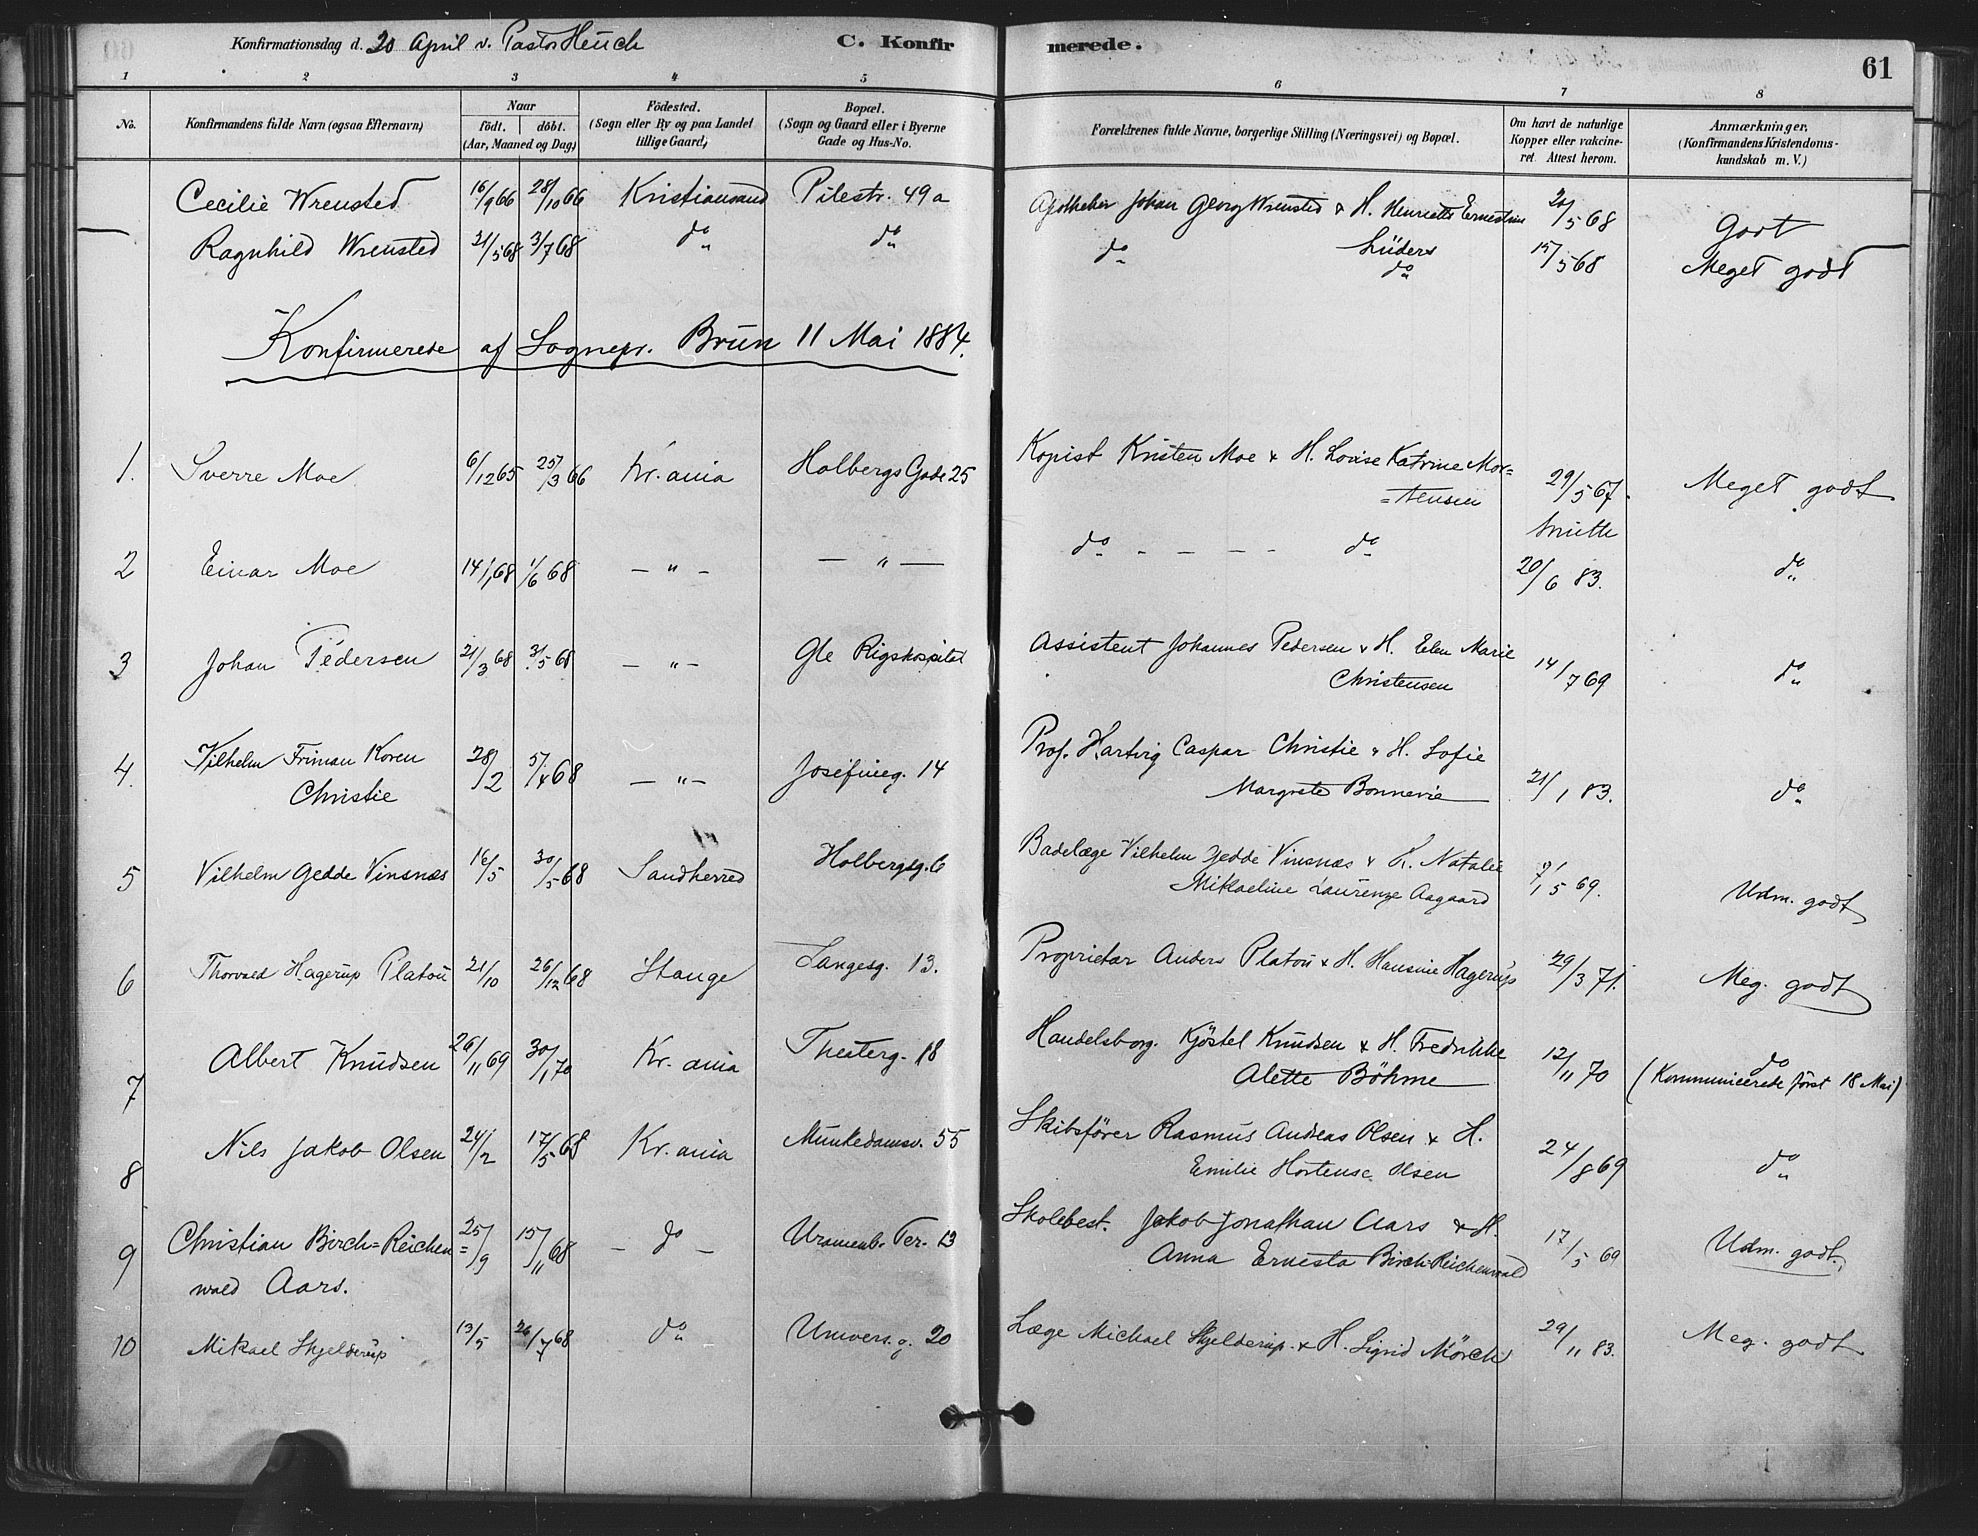 Konfirmationsdag d. 20 April v. Pastor Heuch C. Konfirmerede. 61
1 2 3 4 5 6 7 8
No. Konfirmandens fulde Navn (ogsaa Efternavn) Naar födt. döbt. (Aar, Maaned og Dag) Födested. (Sogn eller By og paa Landet tillige Gaard) Bopæl. (Sogn og Gaard eller i Byerne Gade og Hus-No. Forældrenes fulde Navne, borgerlige Stilling (Næringsvei) og Bopæl. Om havt de naturlige Kopper eller vakcineret. Attest herom. Anmærkninger. (Konfirmandens Kristendomskundskab m. V.)
Cecilie Wrensted 16/9 66 28/10 66 Kristiansand Pilestr. 49a Apotheker Johan Georg Wrensted & H. Henriette Ernestine 20/5 68 Godt
Lüders
Ragnhild Wrensted 21/5 68 3/7 68 do do do do 15/5 68 Meget godt
Konfirmerede af Sognepr. Brun 11 Mai 1884.
1. Sverre Moe 6/12 65 25/3 66 Kr.ania Holbergs Gade 25 Kopist Kristen Moe & H. Lovise Katrine Mor=
=tensen 29/5 67. Meget godt
Smith
2 Einar Moe 14/1 68 1/6 68 — " — — " — do - - - - do 20/6 83. do
3 Johan Pedersen 21/3 68 31/5 68 — " — Gle Rigshospital Assistent Johannes Pedersen & H. Elen Marie
Christensen 14/7 69 do
4. Vilhelm Friman Koren
Christie 28/2 5/4 68 — " — Josefineg. 14 Prof. Hartvig Caspar Christie & H. Sofie
Margrete Bonnevie 21/1 83. do
5 Vilhelm Gedde Vinsnæs 16/5 30/5 68 Sandherred Holbergsg. 6 Badelæge Vilhelm Gedde Vinsnæs & H. Natalie
Mikaeline Laurenze Aagaard 7/5 69. Udm. godt
6 Thorvald Hagerup Platou 21/10 26/12 68 Stange Langesg. 13. Proprietær Anders Platou & H. Hansine Hagerup 29/3 71. Meg. godt
7 Albert Knudsen 26/11 69 30/1 70 Kr.ania Theaterg. 18 Handelsborg. Kjöstel Knudsen & H. Fredrikke
Alette Böhme 12/11 70 do
(Kommunicerede först 18 Mai)
8 Nils Jakob Olsen 24/2 17/5 68 Kr.ania Munkedamsv. 55 Skibsförer Rasmus Andreas Olsen & H.
Emilie Hortense Olsen 24/8 69 do
9 Christian Birch=Reichen=
wald Aars. 25/9 15/11 68 — do — Uranienb. Ter. 13 Skolebest. Jakob Jonathan Aars & H.
Anna Ernesta Birch-Reichenwald 17/5 69 Udm. godt.
10 Mikael Skjelderup 13/5 26/7 68 do Univers.g. 20 Læge Michael Skjelderup & H. Sigrid Mörch 29/11 83. Meg. godt